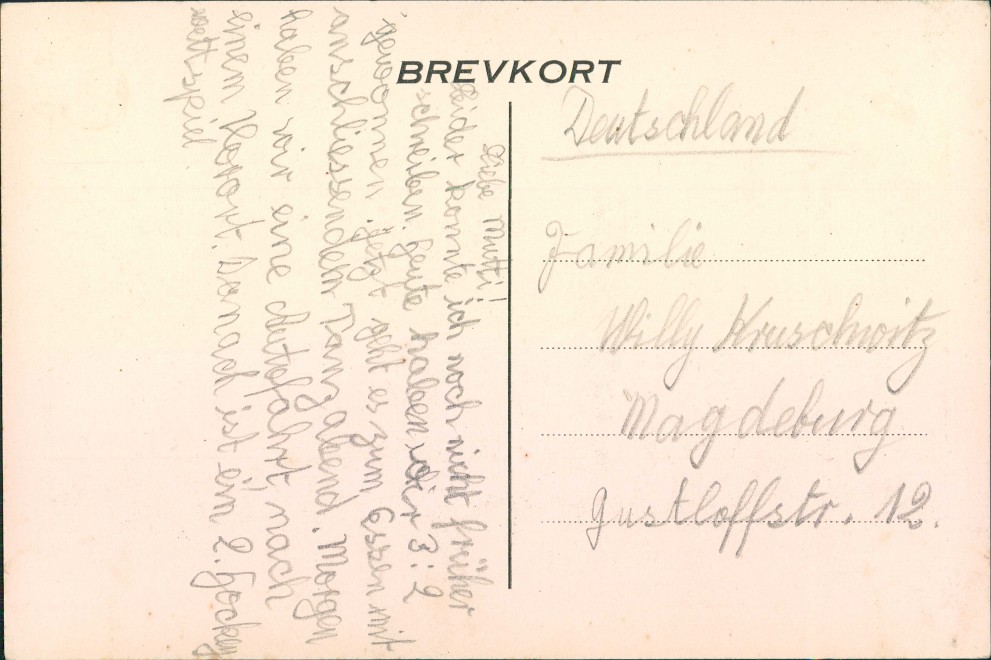 BREVKORT
Liebe Mutti!
Leider konnte ich noch nicht früher
schreiben. Heute haben wir 3:2
gewonnen. Jetzt geht es zum Essen mit
anschliessendem Tanzabend. Morgen
haben wir eine Autofahrt nach
einem Kurort. Danach ist ein 2. Hockey
wettspiel.
Deutschland
Familie
Willy Kruschwitz
Magdeburg
Gustloffstr. 12.